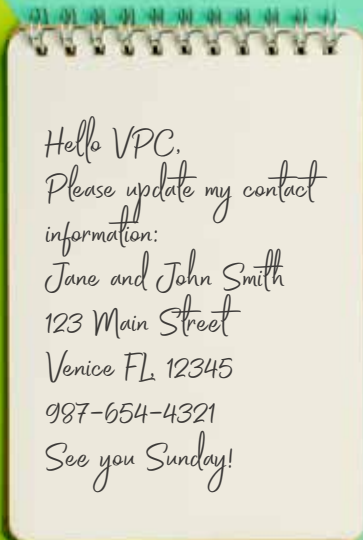 Hello VPC,
Please update my contact
information:
Jane and John Smith
123 Main Street
Venice FL, 12345
987-654-4321
See you Sunday!